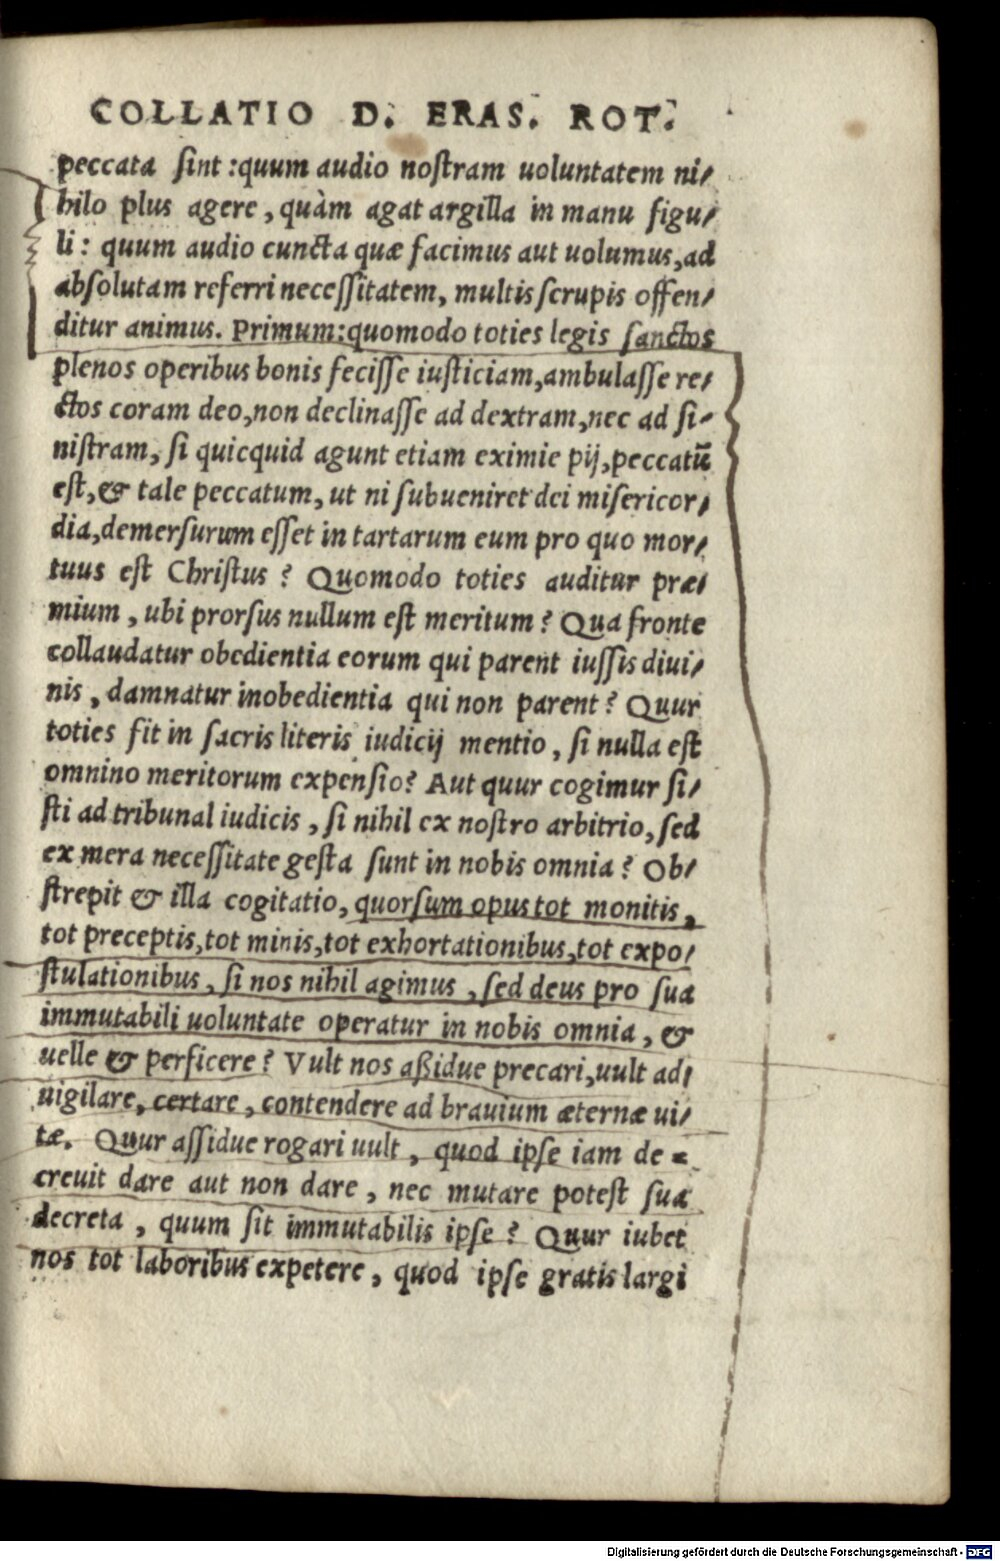 COLLATIO D. ERAS. ROT.
peccata sint: quum audio nostram uoluntatem ni-
hilo plus agere, quàm agat argilla in manu figu-
li: quum audio cuncta quæ facimus aut uolumus, ad
absolutam referri necessitatem, multis scrupis offen-
ditur animus. Primum: quomodo toties legis sanctos
plenos operibus bonis fecisse iusticiam, ambulasse re-
ctos coram deo, non declinasse ad dextram, nec ad si-
nistram, si quicquid agunt etiam eximie pij, peccatū
est, & tale peccatum, ut ni subueniret dei misericor-
dia, demersurum esset in tartarum eum pro quo mor-
tuus est Christus? Quomodo toties auditur præ-
mium, ubi prorsus nullum est meritum? Qua fronte
collaudatur obedientia eorum qui parent iussis diui-
nis, damnatur inobedientia qui non parent? Quur
toties fit in sacris literis iudicij mentio, si nulla est
omnino meritorum expensio? Aut quur cogimur si-
sti ad tribunal iudicis, si nihil ex nostro arbitrio, sed
ex mera necessitate gesta sunt in nobis omnia? Ob-
strepit & illa cogitatio, quorsum opus tot monitis,
tot preceptis, tot minis, tot exhortationibus, tot expo-
stulationibus, si nos nihil agimus, sed deus pro sua
immutabili uoluntate operatur in nobis omnia, &
uelle & perficere? Vult nos aßidue precari, uult ad-
uigilare, certare, contendere ad brauium æternæ ui-
tæ. Quur assidue rogari uult, quod ipse iam de-
creuit dare aut non dare, nec mutare potest sua
decreta, quum sit immutabilis ipse? Quur iubet
nos tot laboribus expetere, quod ipse gratis largi
Digitalisierung gefördert durch die Deutsche Forschungsgemeinschaft - DFG